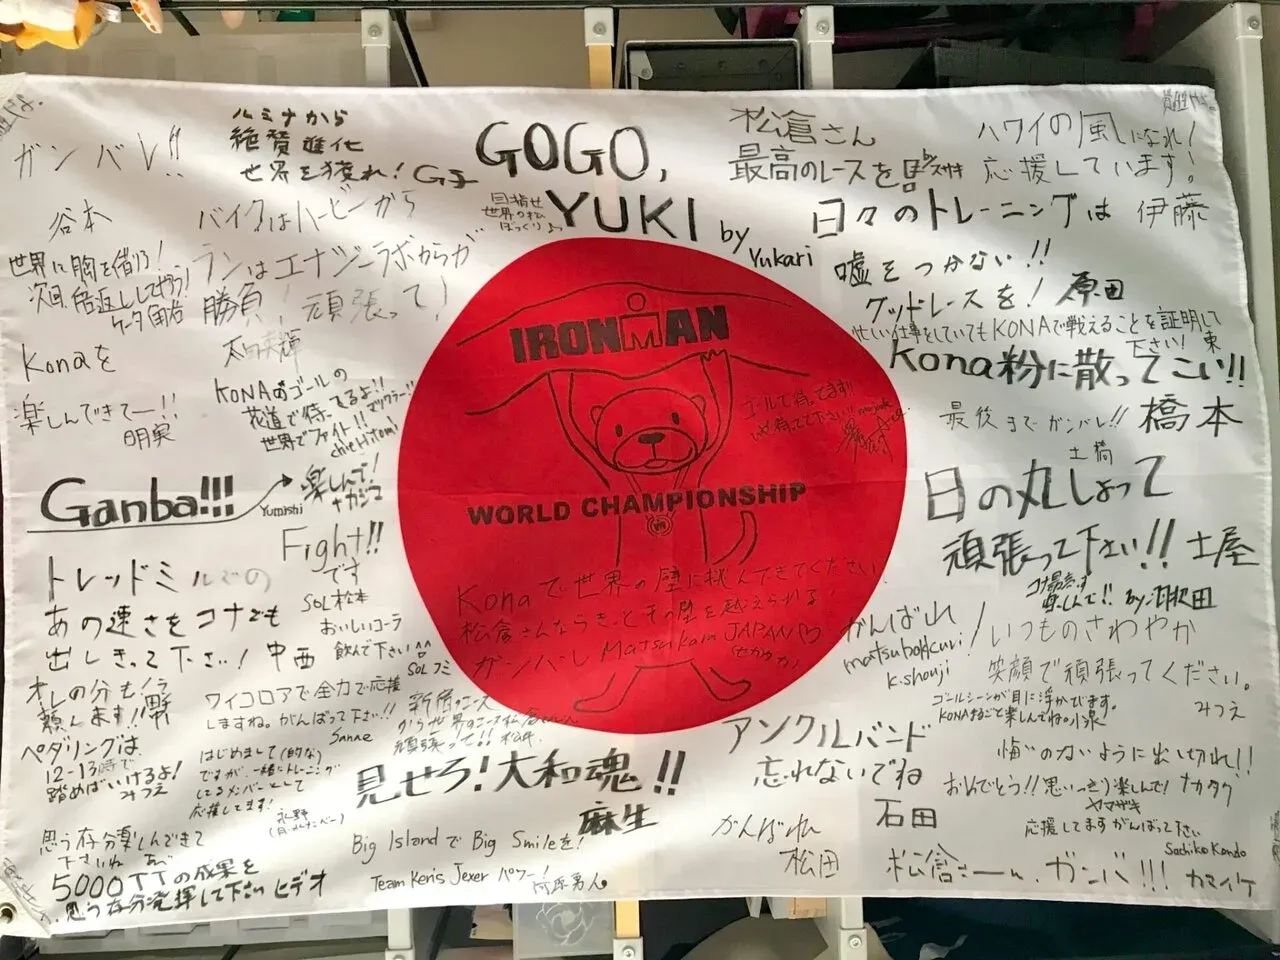 ガンバレ!!
谷本
ルミナから
絶賛進化
世界を獲れ!
GOGO,
YUKI
by
Yukari
目指せ
世界の松
ぼっくり
松倉さん
最高のレースを
ハワイの風になれ!
応援しています!
伊藤
日々のトレーニングは
嘘をつかない!!
グッドレースを! 原田
忙しい仕事をしていてもKONAで戦えることを証明して
下さい! 東
世界に胸を借りる!
バイクはハービーから
ランはエナジーラボからが
勝負! 頑張って!
Konaを
楽しんできてー!!
明実
KONAのゴールの
花道で待ってるよ!!
世界でファイト!!
IRONMAN
WORLD CHAMPIONSHIP
ゴールで待ってます!!
Kona粉に散ってこい!!
橋本
最後までガンバレ!!
土橋
日の丸しょって
頑張って下さい!! 土屋
Ganba!!!
Yumishi
楽しんで!
ナカジマ
Fight!!
です
SOL松本
おいしいコーラ
飲んで下さい^^
SOLフミ
トレッドミルでの
あの速さをコナでも
出しきって下さい! 中西
Konaで世界の壁に挑んできてください!
松倉さんならきっとその壁を越えられる!
ガンバレ Matsukura JAPAN♡
がんばれ!
matsubokkuri
K.shouji
いつものさわやか
笑顔で頑張ってください。
みつえ
ゴールシーンが目に浮かびます。
KONAまるごと楽しんでね 小泉
オレの分も
頼んます!!
ペダリングは
12-13時で
踏めばいけるよ!
みつえ
ワイコロアで全力で応援
しますね。がんばって下さい!!
Sanae
はじめまして(的な)
ですが、一緒にトレーニング
してるメンバーとして
応援してます!
新宿のエース
から世界のエースへ
頑張って!! 松井
見せろ!大和魂!!
麻生
アンクルバンド
忘れないでね
石田
悔いのないように出し切れ!!
ナカタク
おめでとう!!思いっきり楽しんで!
ヤマザキ
応援してますがんばって下さい
Sachiko Kondo
思う存分楽しんできて
下さいね
5000TTの成果を
思う存分発揮して下さい ヒデオ
Big IslandでBig Smileを!
Team Ken's Jexer パワー!
がんばれ
松田
松倉さーん、ガンバ!!! カマイケ